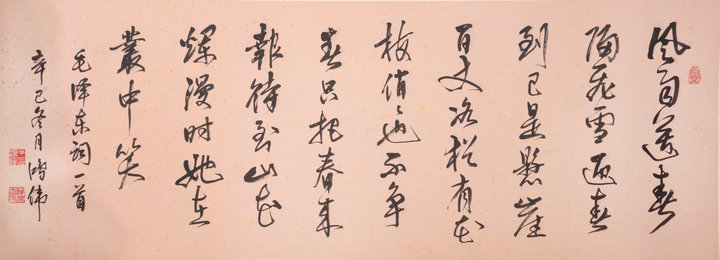 风雨送春
归飛雪迎春
到已是懸崖
百丈冰犹有花
枝俏俏也不争
春只把春来
報待到山花
爛漫时她在
叢中笑
毛泽东词一首
辛巳冬月鸿伟